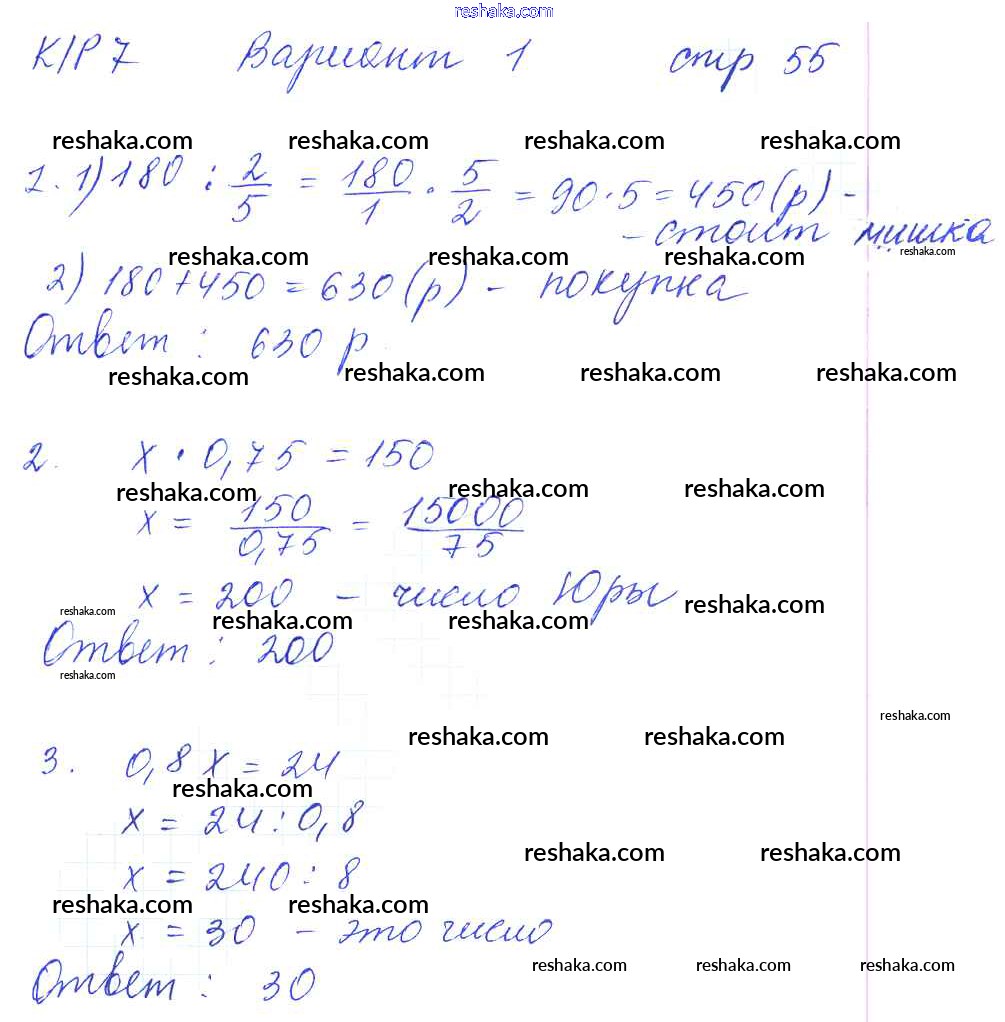 reshaka.com
К/Р 7 Вариант 1 стр 55
reshaka.com reshaka.com reshaka.com reshaka.com
1. 1) 180 : 2/5 = 180/1 · 5/2 = 90 · 5 = 450 (р) -
- стоит мишка
reshaka.com reshaka.com reshaka.com reshaka.com
2) 180 + 450 = 630 (р) - покупка
Ответ : 630 р.
reshaka.com reshaka.com reshaka.com reshaka.com
2. х · 0,75 = 150
reshaka.com reshaka.com reshaka.com
х = 150/0,75 = 15000/75
х = 200 - число Юры
reshaka.com reshaka.com reshaka.com reshaka.com
Ответ : 200
reshaka.com
reshaka.com
reshaka.com reshaka.com
3. 0,8 х = 24
reshaka.com
х = 24 : 0,8
reshaka.com reshaka.com
х = 240 : 8
reshaka.com reshaka.com
х = 30 - это число
reshaka.com reshaka.com reshaka.com
Ответ : 30